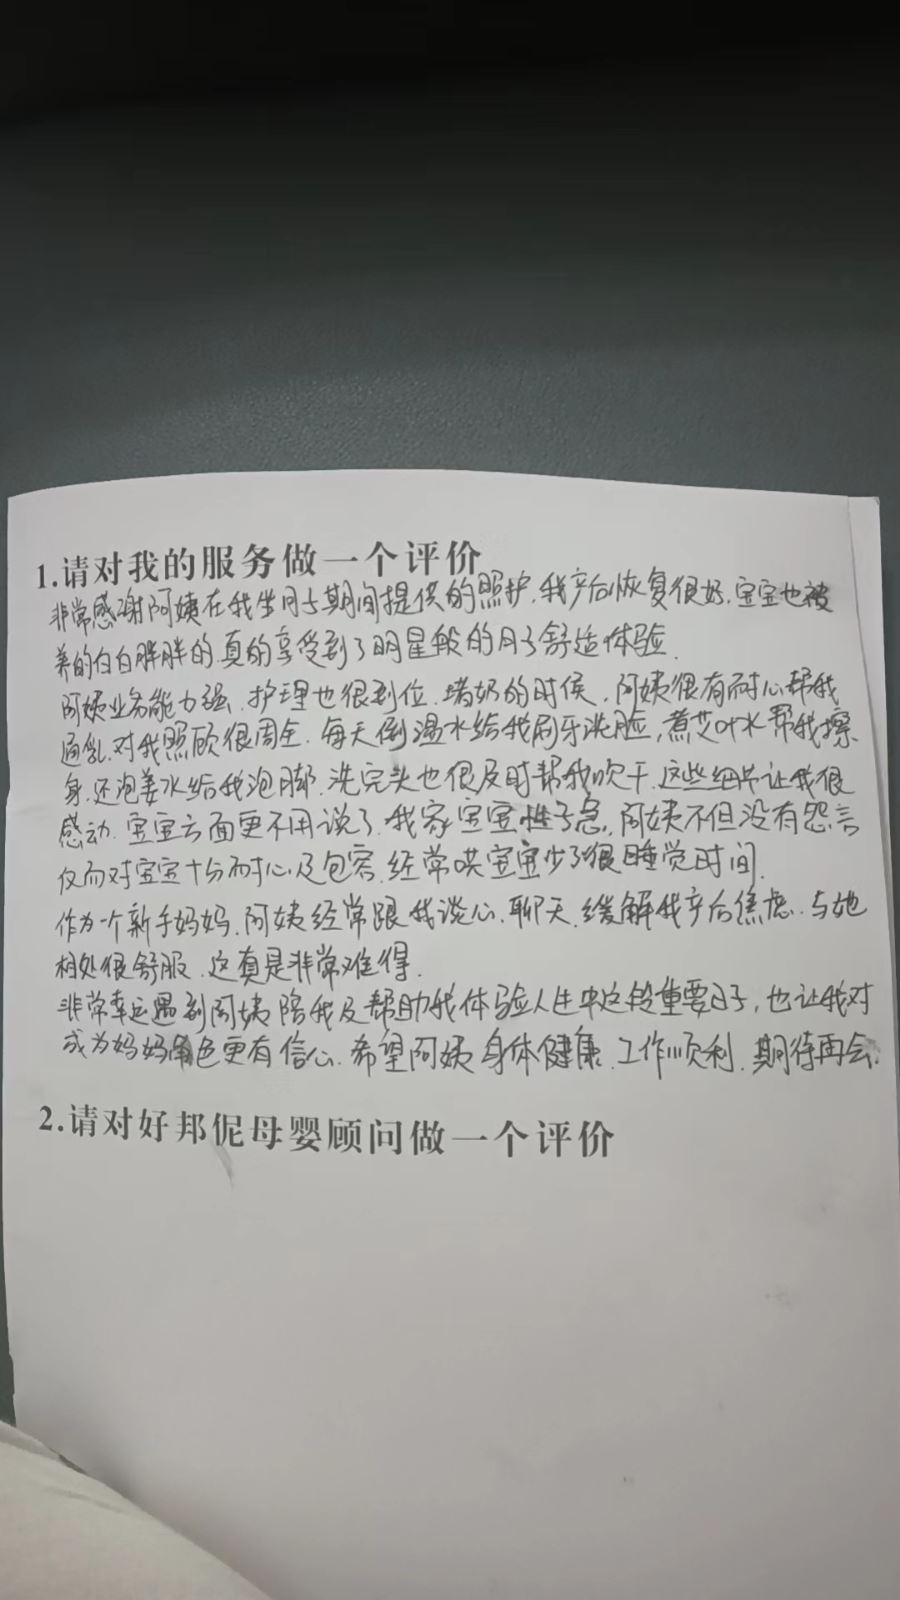 1.请对我的服务做一个评价
非常感谢阿姨在我坐月子期间提供的照护,我产后恢复很好,宝宝也被
养的白白胖胖的,真的享受到了明星般的月子舒适体验.
阿姨业务能力强,护理也很到位,堵奶的时候,阿姨很有耐心帮我
通乳,对我照顾很周全.每天倒温水给我刷牙洗脸,煮艾叶水帮我擦
身,还泡姜水给我泡脚,洗完头也很及时帮我吹干,这些细节让我很
感动.宝宝方面更不用说了,我家宝宝性子急,阿姨不但没有怨言
仅而对宝宝十分耐心及包容,经常哄宝宝少了很睡觉时间.
作为一个新手妈妈,阿姨经常跟我谈心,聊天,缓解我产后焦虑.与她
相处很舒服,这真是非常难得.
非常幸运遇到阿姨陪我及帮助我体验人生中这段重要日子,也让我对
成为妈妈角色更有信心.希望阿姨身体健康,工作顺利,期待再会.
2.请对好邦伲母婴顾问做一个评价